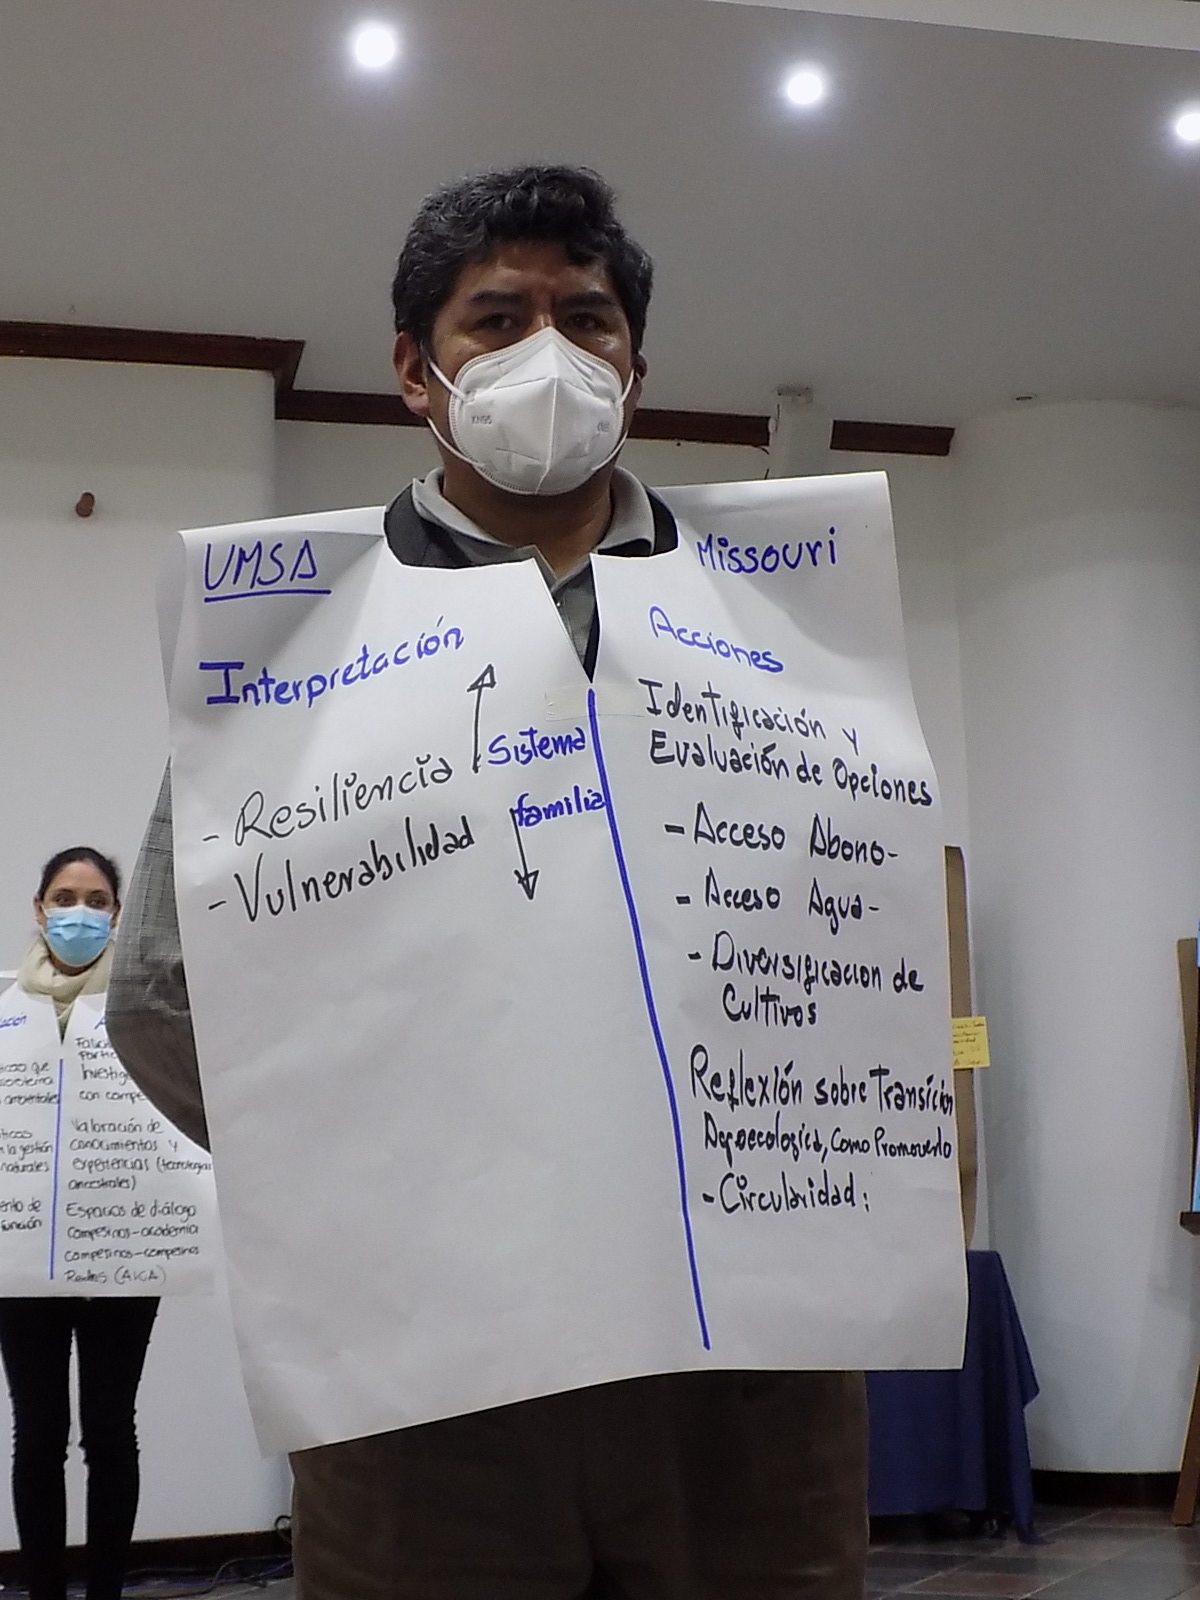 KN95
UMSA
Interpretación
- Resiliencia
- Vulnerabilidad
Sistema
familia
Missouri
Acciones
Identificación y
Evaluación de Opciones
- Acceso Abono-
- Acceso Agua-
- Diversificacion de
Cultivos
Reflexión sobre Transición
Agroecologica, Como Promoverlo
- Circularidad:
ación
que
ambientales
la gestión
naturales
ento de
función
con compe
Valoración de
conocimientos y
experiencias (tecnologias
ancestrales)
Espacios de diálogo
campesinos-academia
campesinos-campesinos
Redes (AVCA)